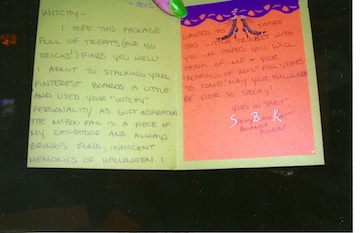 WITCHY-
I HOPE THIS PACKAGE
FULL OF TREATS (AND NO
TRICKS!) FINDS YOU WELL!
I ADMIT TO STALKING YOUR
PINTEREST BOARDS A LITTLE
AND USED YOUR "WITCHY"
PERSONALITY AS GIFT INSPIRATION.
THE MCBOO PAIL IS A PIECE OF
MY CHILDHOOD AND ALWAYS
BRINGS FOND, INNOCENT
MEMORIES OF HALLOWEEN. I
WANTED TO SHARE
THIS LITTLE WITH
YOU IN HOPES YOU WILL
THINK OF ME + YOUR
FOR YEARS
TO COME! MAY YOUR HALLOWEEN
BE EVER SO SPOOKY!
YOURS IN